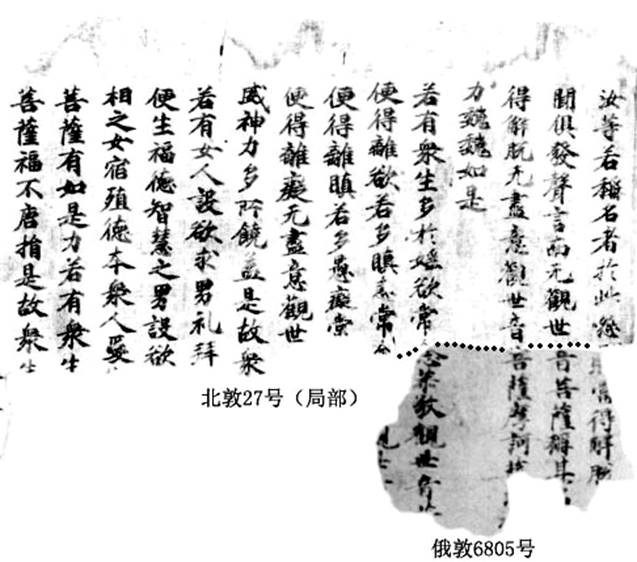 汝等若稱名者於此怨當得解脫
聞俱發聲言南无觀世音菩薩稱其
得解脫无盡意觀世音菩薩摩訶
力巍巍如是
若有衆生多於婬欲常念恭敬觀世音
便得離欲若多瞋恚常念觀世
便得離瞋若多愚癡常
便得離癡无盡意觀世
威神力多所饒益是故衆
若有女人設欲求男礼拜
便生福德智慧之男設欲
相之女宿殖德本衆人愛
菩薩有如是力若有衆生
菩薩福不唐捐是故衆生
北敦27号（局部）
俄敦6805号